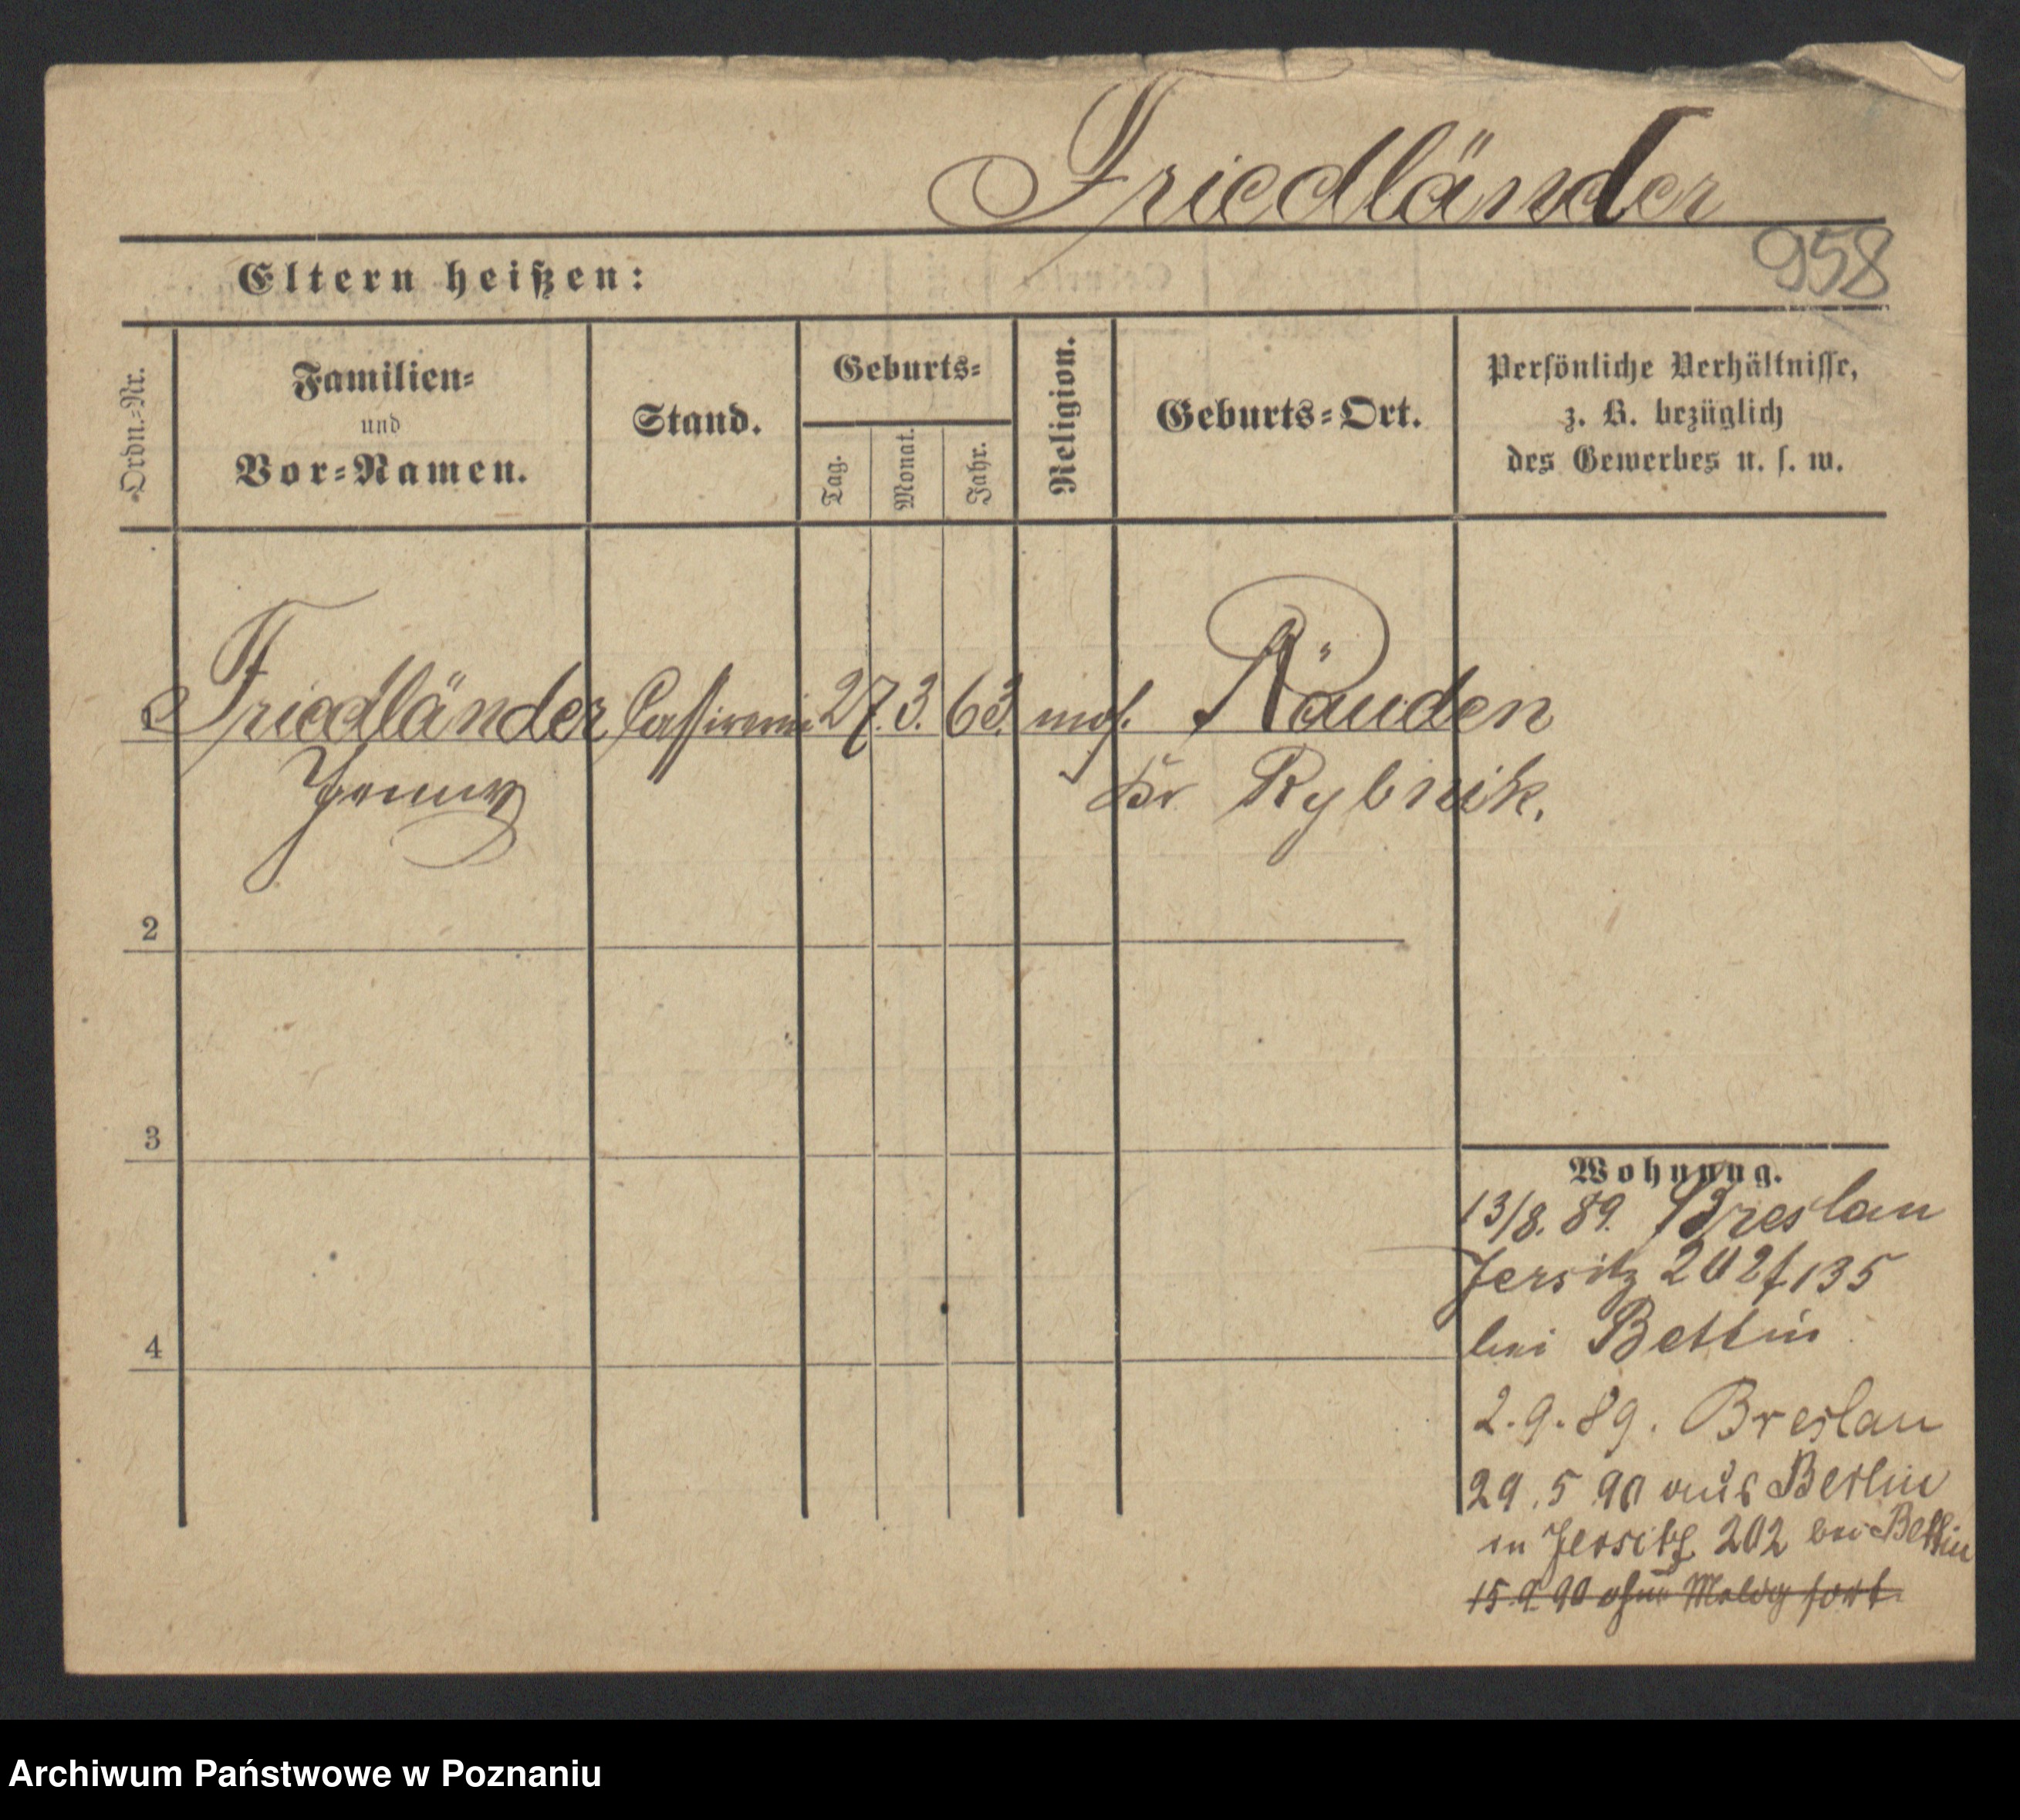 Friedländer
958
Eltern heißen:
Ordn.-Nr.
Familien-
und
Vor-Namen.
Stand.
Geburts-
Tag.
Monat.
Jahr.
Religion.
Geburts-Ort.
Persönliche Verhältnisse,
z. B. bezüglich
des Gewerbes u. s. w.
1 Friedländer Cassirerin 27. 3. 63. mos. Räuden
Jenny Kr Rybnik.
2
3
4
Wohnung.
13/8. 89. Breslau
Jersitz 202f 135
bei Bettin
2.9.89. Breslau
29.5 90 aus Berlin
in Jersitz 202 bei Bettin
15.9.90 ohne Meldg fort
Archiwum Państwowe w Poznaniu